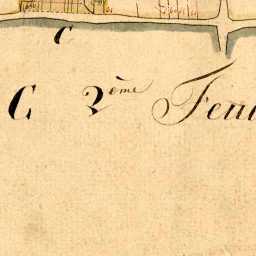 C
C 2ème Feui